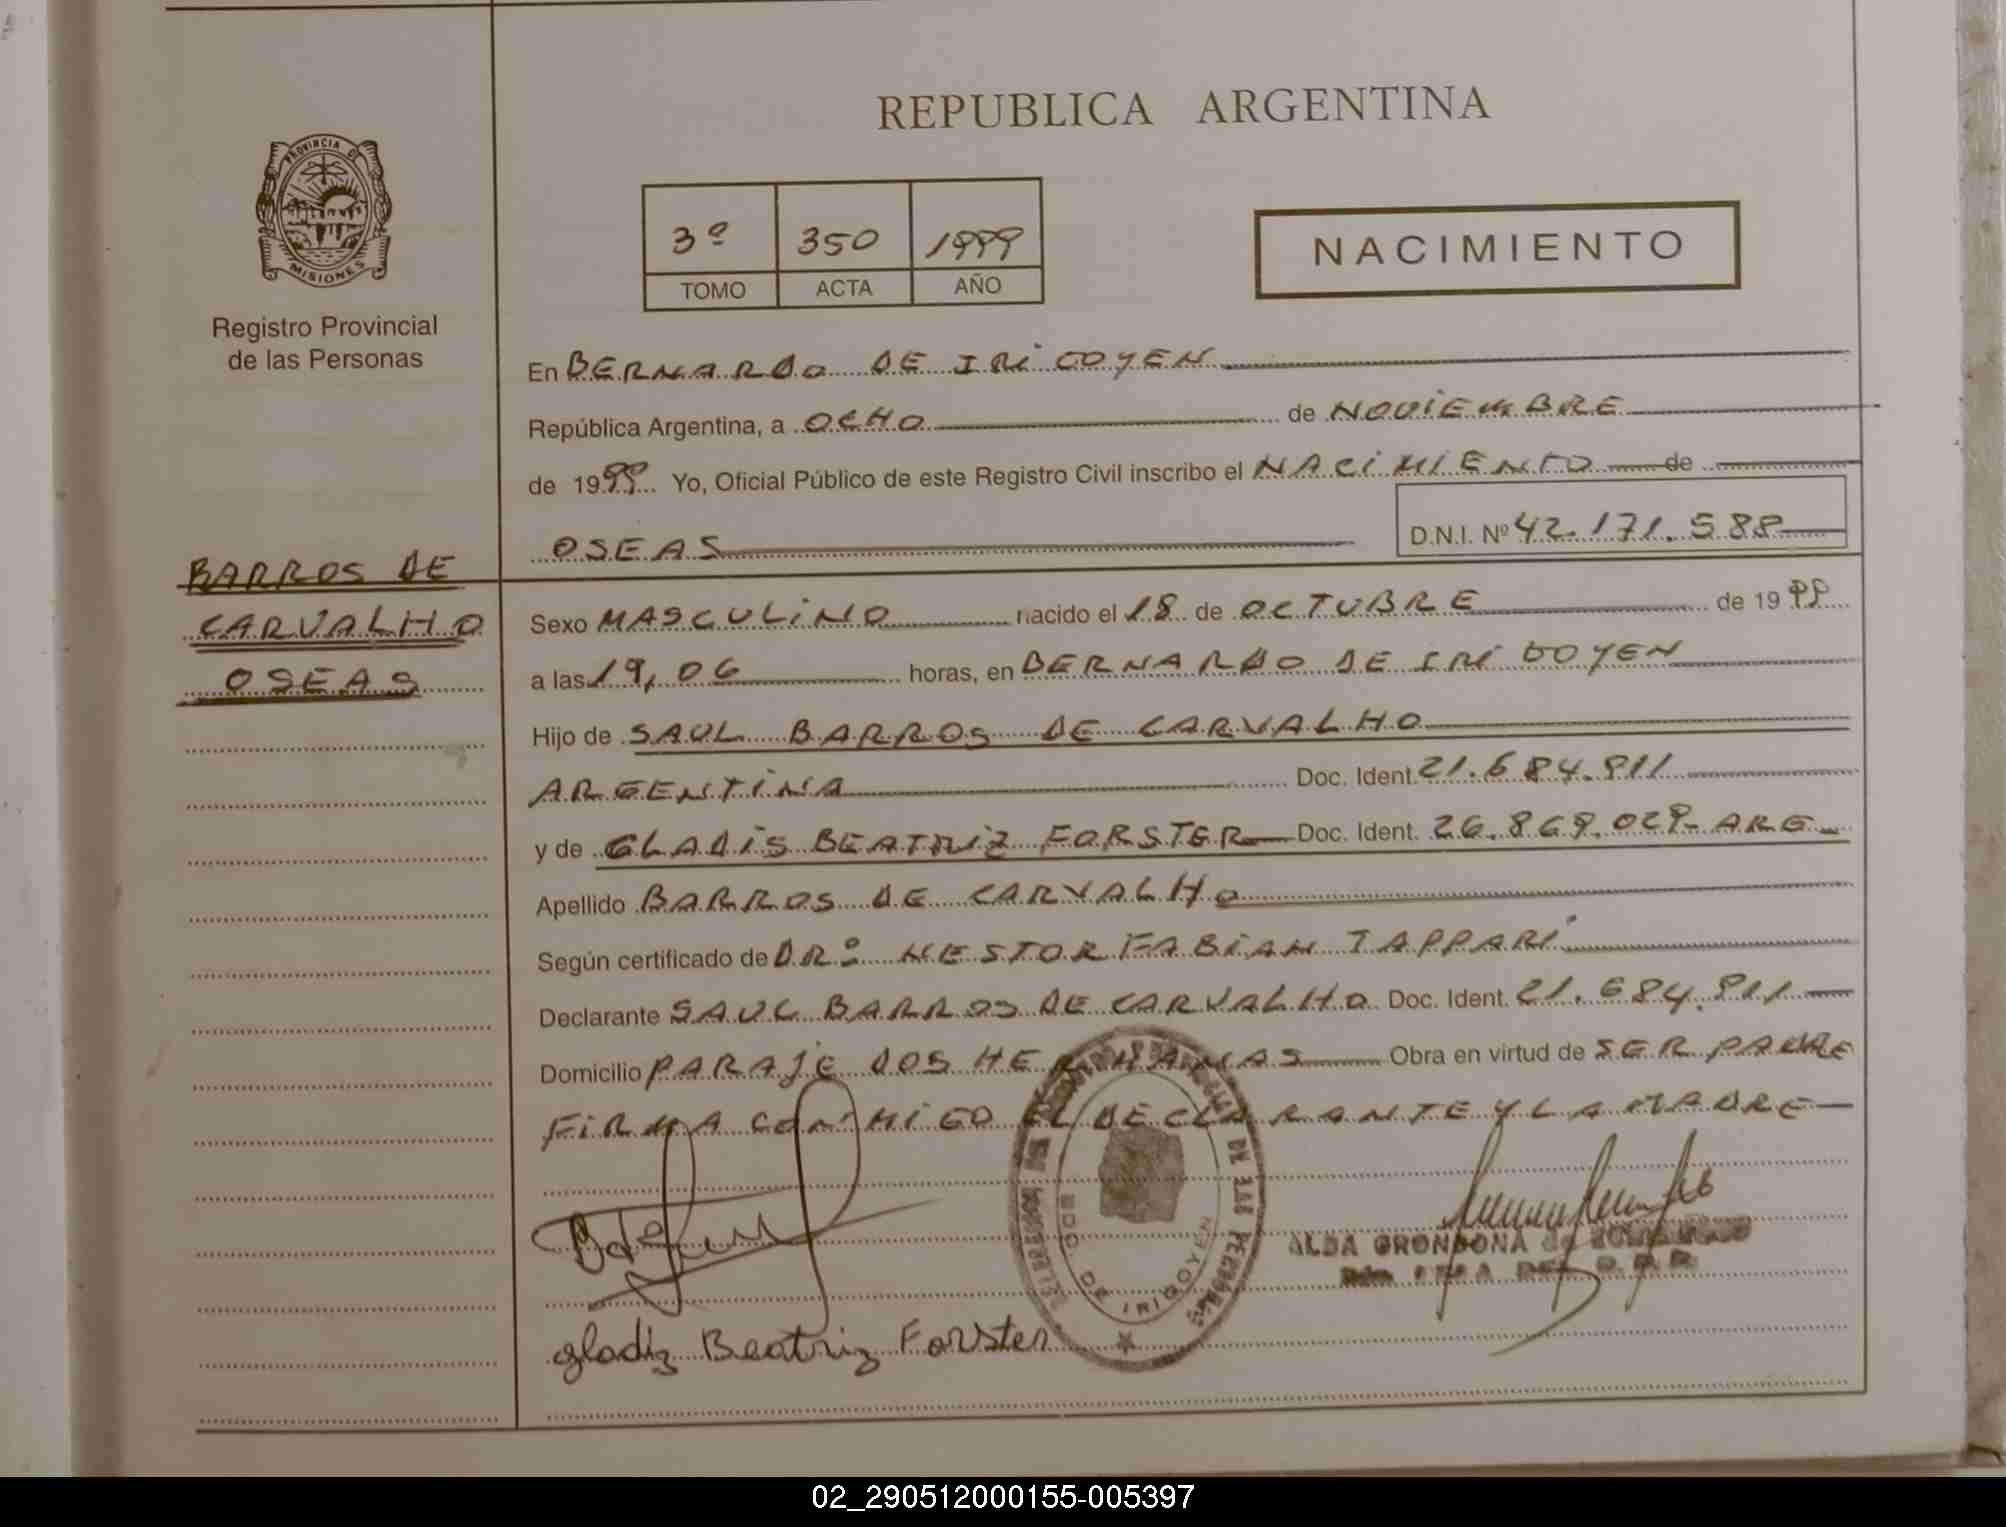 REPUBLICA ARGENTINA
PROVINCIA DE
MISIONES
Registro Provincial
de las Personas
3º 350 1999
TOMO ACTA AÑO
NACIMIENTO
En BERNARDO DE IRIGOYEN
República Argentina, a OCHO de NOVIEMBRE
de 1999 Yo, Oficial Público de este Registro Civil inscribo el NACIMIENTO de
OSEAS
D.N.I. Nº 42.171.588
BARROS DE
CARVALHO
OSEAS
Sexo MASCULINO nacido el 18 de OCTUBRE de 1999
a las 19,06 horas, en BERNARDO DE IRIGOYEN
Hijo de SAUL BARROS DE CARVALHO
ARGENTINA Doc. Ident. 21.684.911
y de GLADIS BEATRIZ FORSTER Doc. Ident. 26.869.029- ARG.
Apellido BARROS DE CARVALHO
Según certificado de DRº NESTOR FABIAN TAPPARI
Declarante SAUL BARROS DE CARVALHO Doc. Ident. 21.684.911
Domicilio PARAJE DOS HERMANAS Obra en virtud de SER PADRE
FIRMA CONMIGO EL DECLARANTE Y LA MADRE
DE LAS PERSONAS
BDO DE IRIGOYEN
ALBA GRONDONA de
gladiz Beatriz Forster
02_290512000155-005397